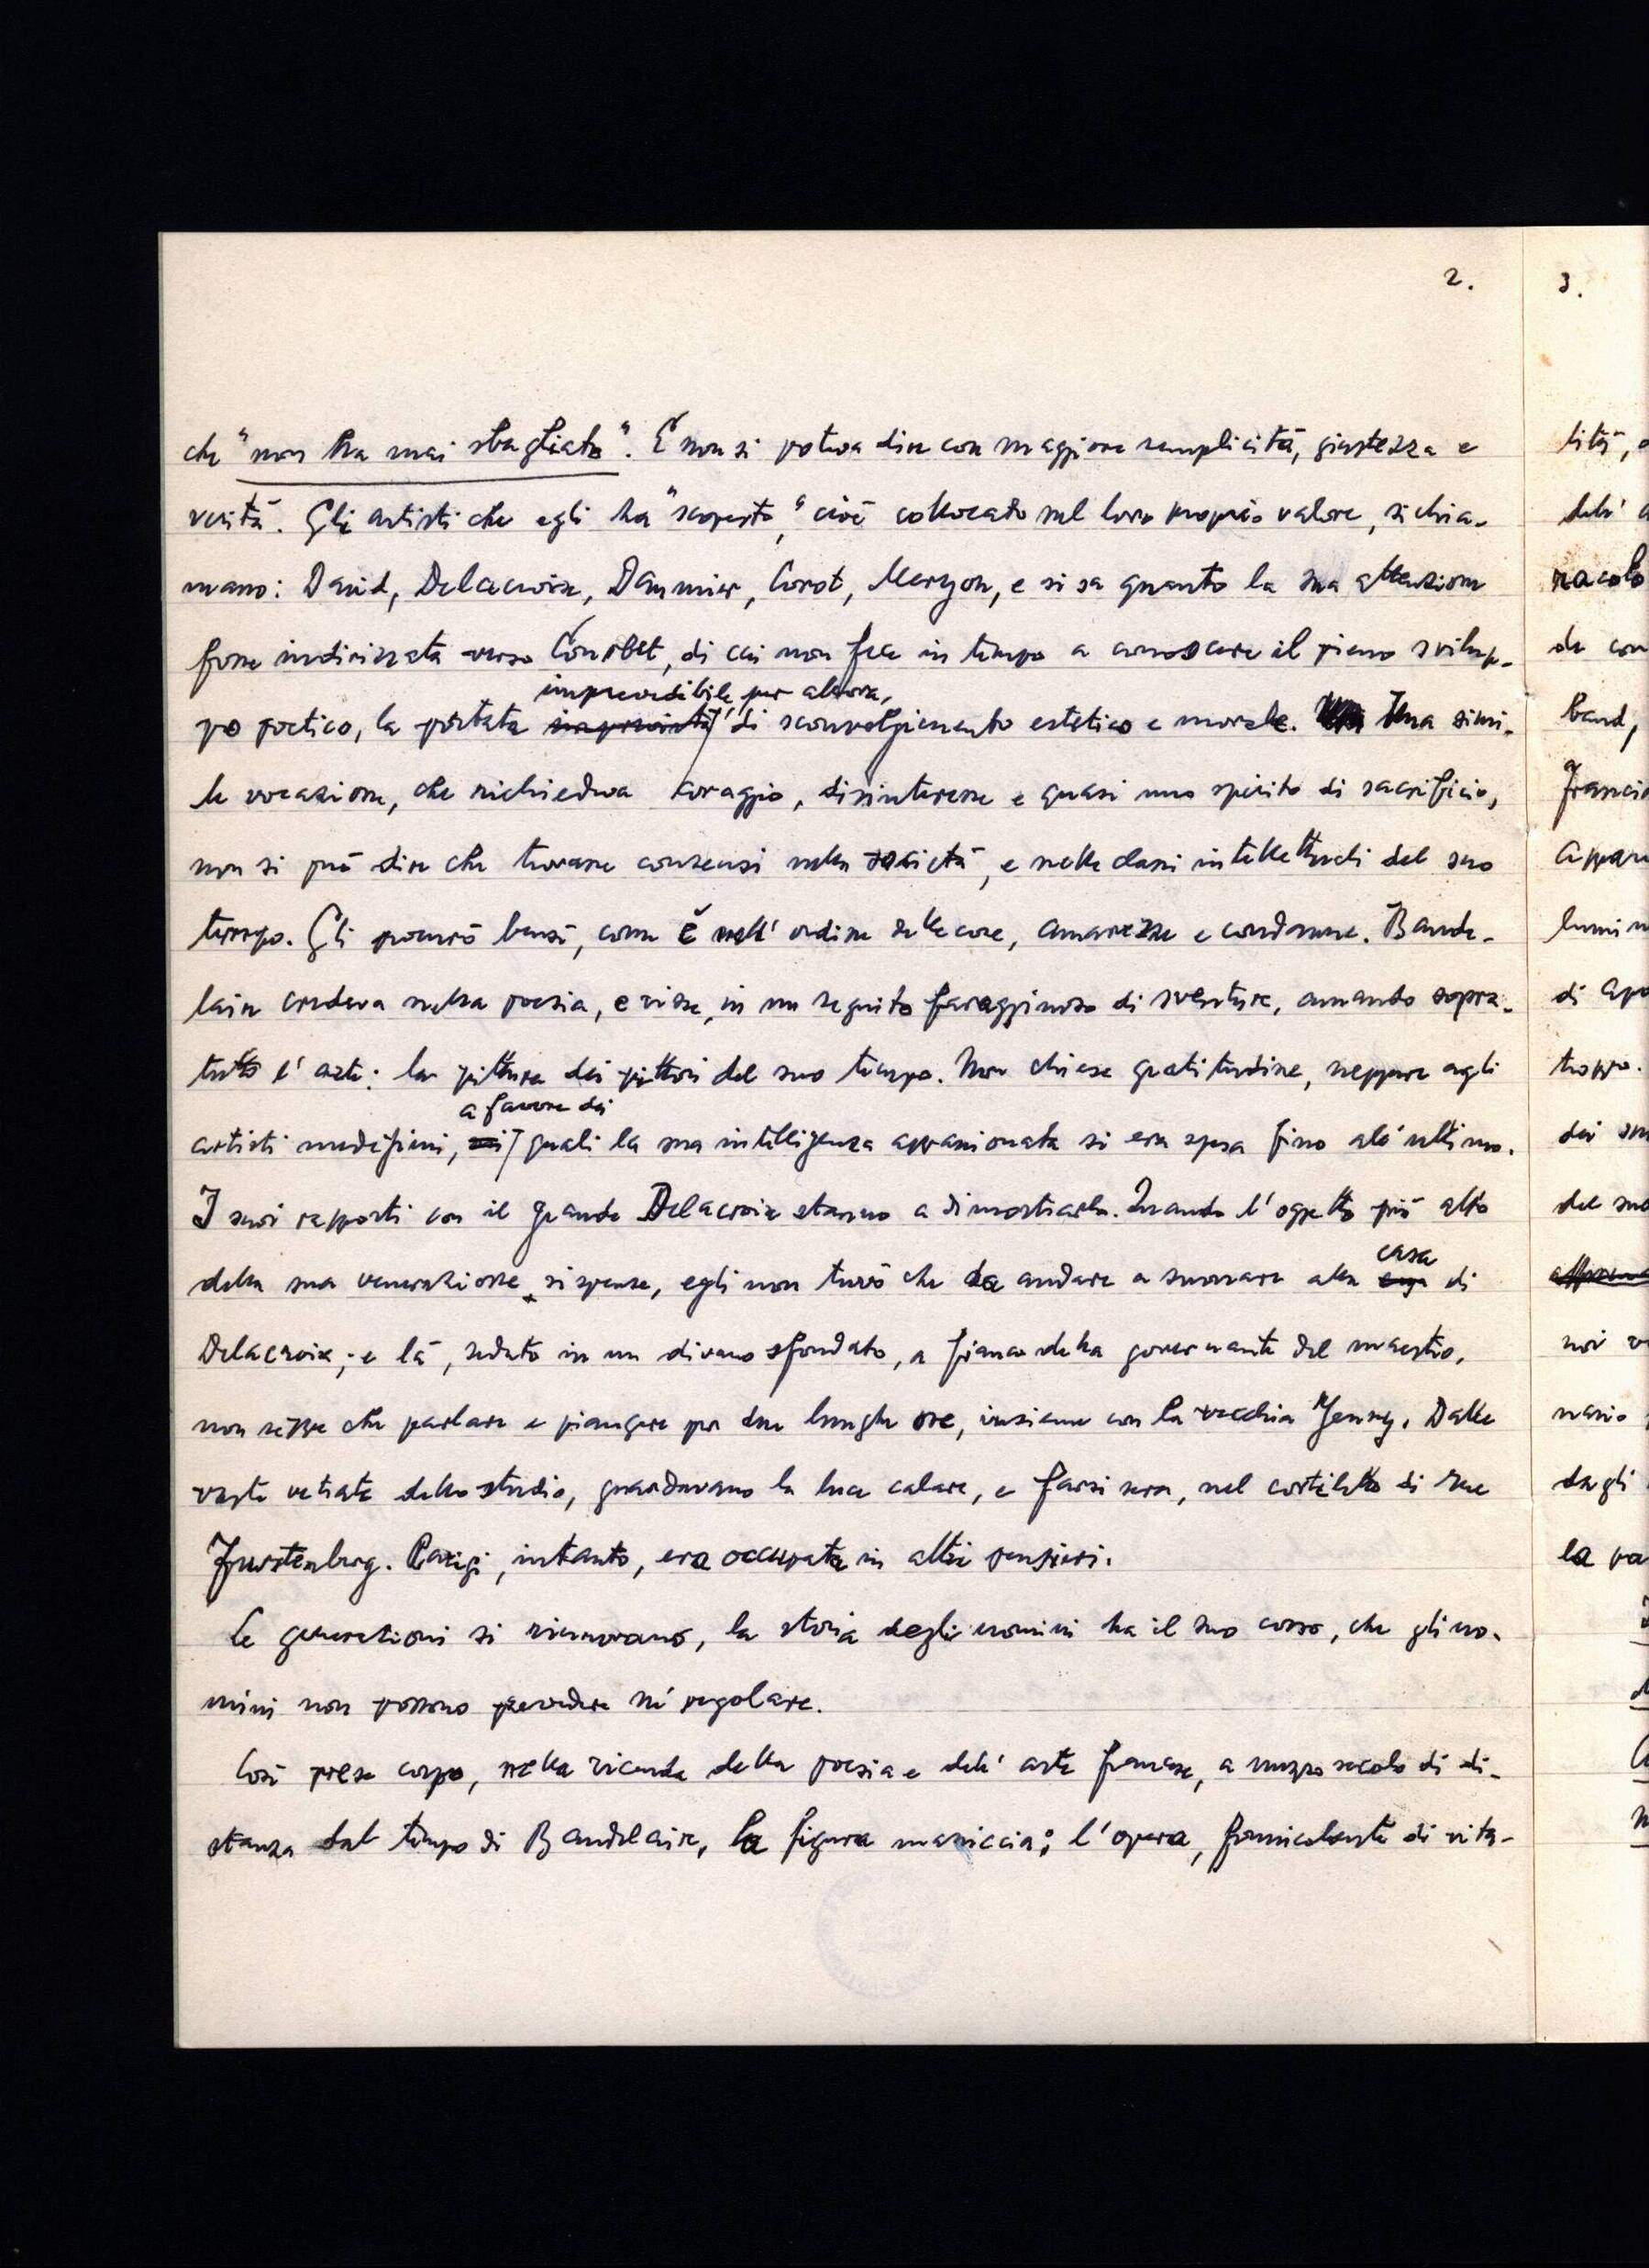 2.
che "non ha mai sbagliato". E non si poteva dire con maggiore semplicità, giustezza e
verità. Gli artisti che egli ha "scoperto," cioè collocato nel loro proprio valore, si chia-
mano: David, Delacroix, Daumier, Corot, Meryon, e si sa quanto la sua attenzione
fosse indirizzata verso Courbet, di cui non fece in tempo a conoscere il pieno svilup-
imprevedibile, per allora,
po poetico, la portata di sconvolgimento estetico e morale. Una simi-
le vocazione, che richiedeva coraggio, disinteresse e quasi uno spirito di sacrificio,
non si può dire che trovasse consensi nella società, e nelle classi intellettuali del suo
tempo. Gli procurò bensì, come è nell'ordine delle cose, amarezze e condanne. Baude-
laire credeva nella poesia, e visse, in un seguito farragginoso di sventure, amando sopra-
tutto l'arte: la pittura dei pittori del suo tempo. Non chiese gratitudine, neppure agli
a favore dei
artisti medesimi, quali la sua intelligenza appassionata si era spesa fino all'ultimo.
I suoi rapporti con il grande Delacroix stanno a dimostrarlo. Quando l'oggetto più alto
casa
della sua venerazione si spense, egli non trovò che da andare a suonare alla di
Delacroix; e là, seduto in un divano sfondato, a fianco della governante del maestro,
non seppe che parlare e piangere per due lunghe ore, insieme con la vecchia Jenny. Dalle
vaste vetrate dello studio, guardavano la luce calare, e farsi sera, nel cortiletto di rue
Furstenberg. Parigi, intanto, era occupata in altri pensieri.
Le generazioni si rinnovano, la storia degli uomini ha il suo corso, che gli uo-
mini non possono prevedere né regolare.
Così prese corpo, nella vicenda della poesia e dell'arte francese, a mezzo secolo di di-
stanza dal tempo di Baudelaire, la figura massiccia; l'opera, formicolante di vita-
3.
lità, e
dell'a
racolo
da con
baud,
Francia
appar
lumin
di apo
troppo.
del suo
noi v
nario
dagli
la pa